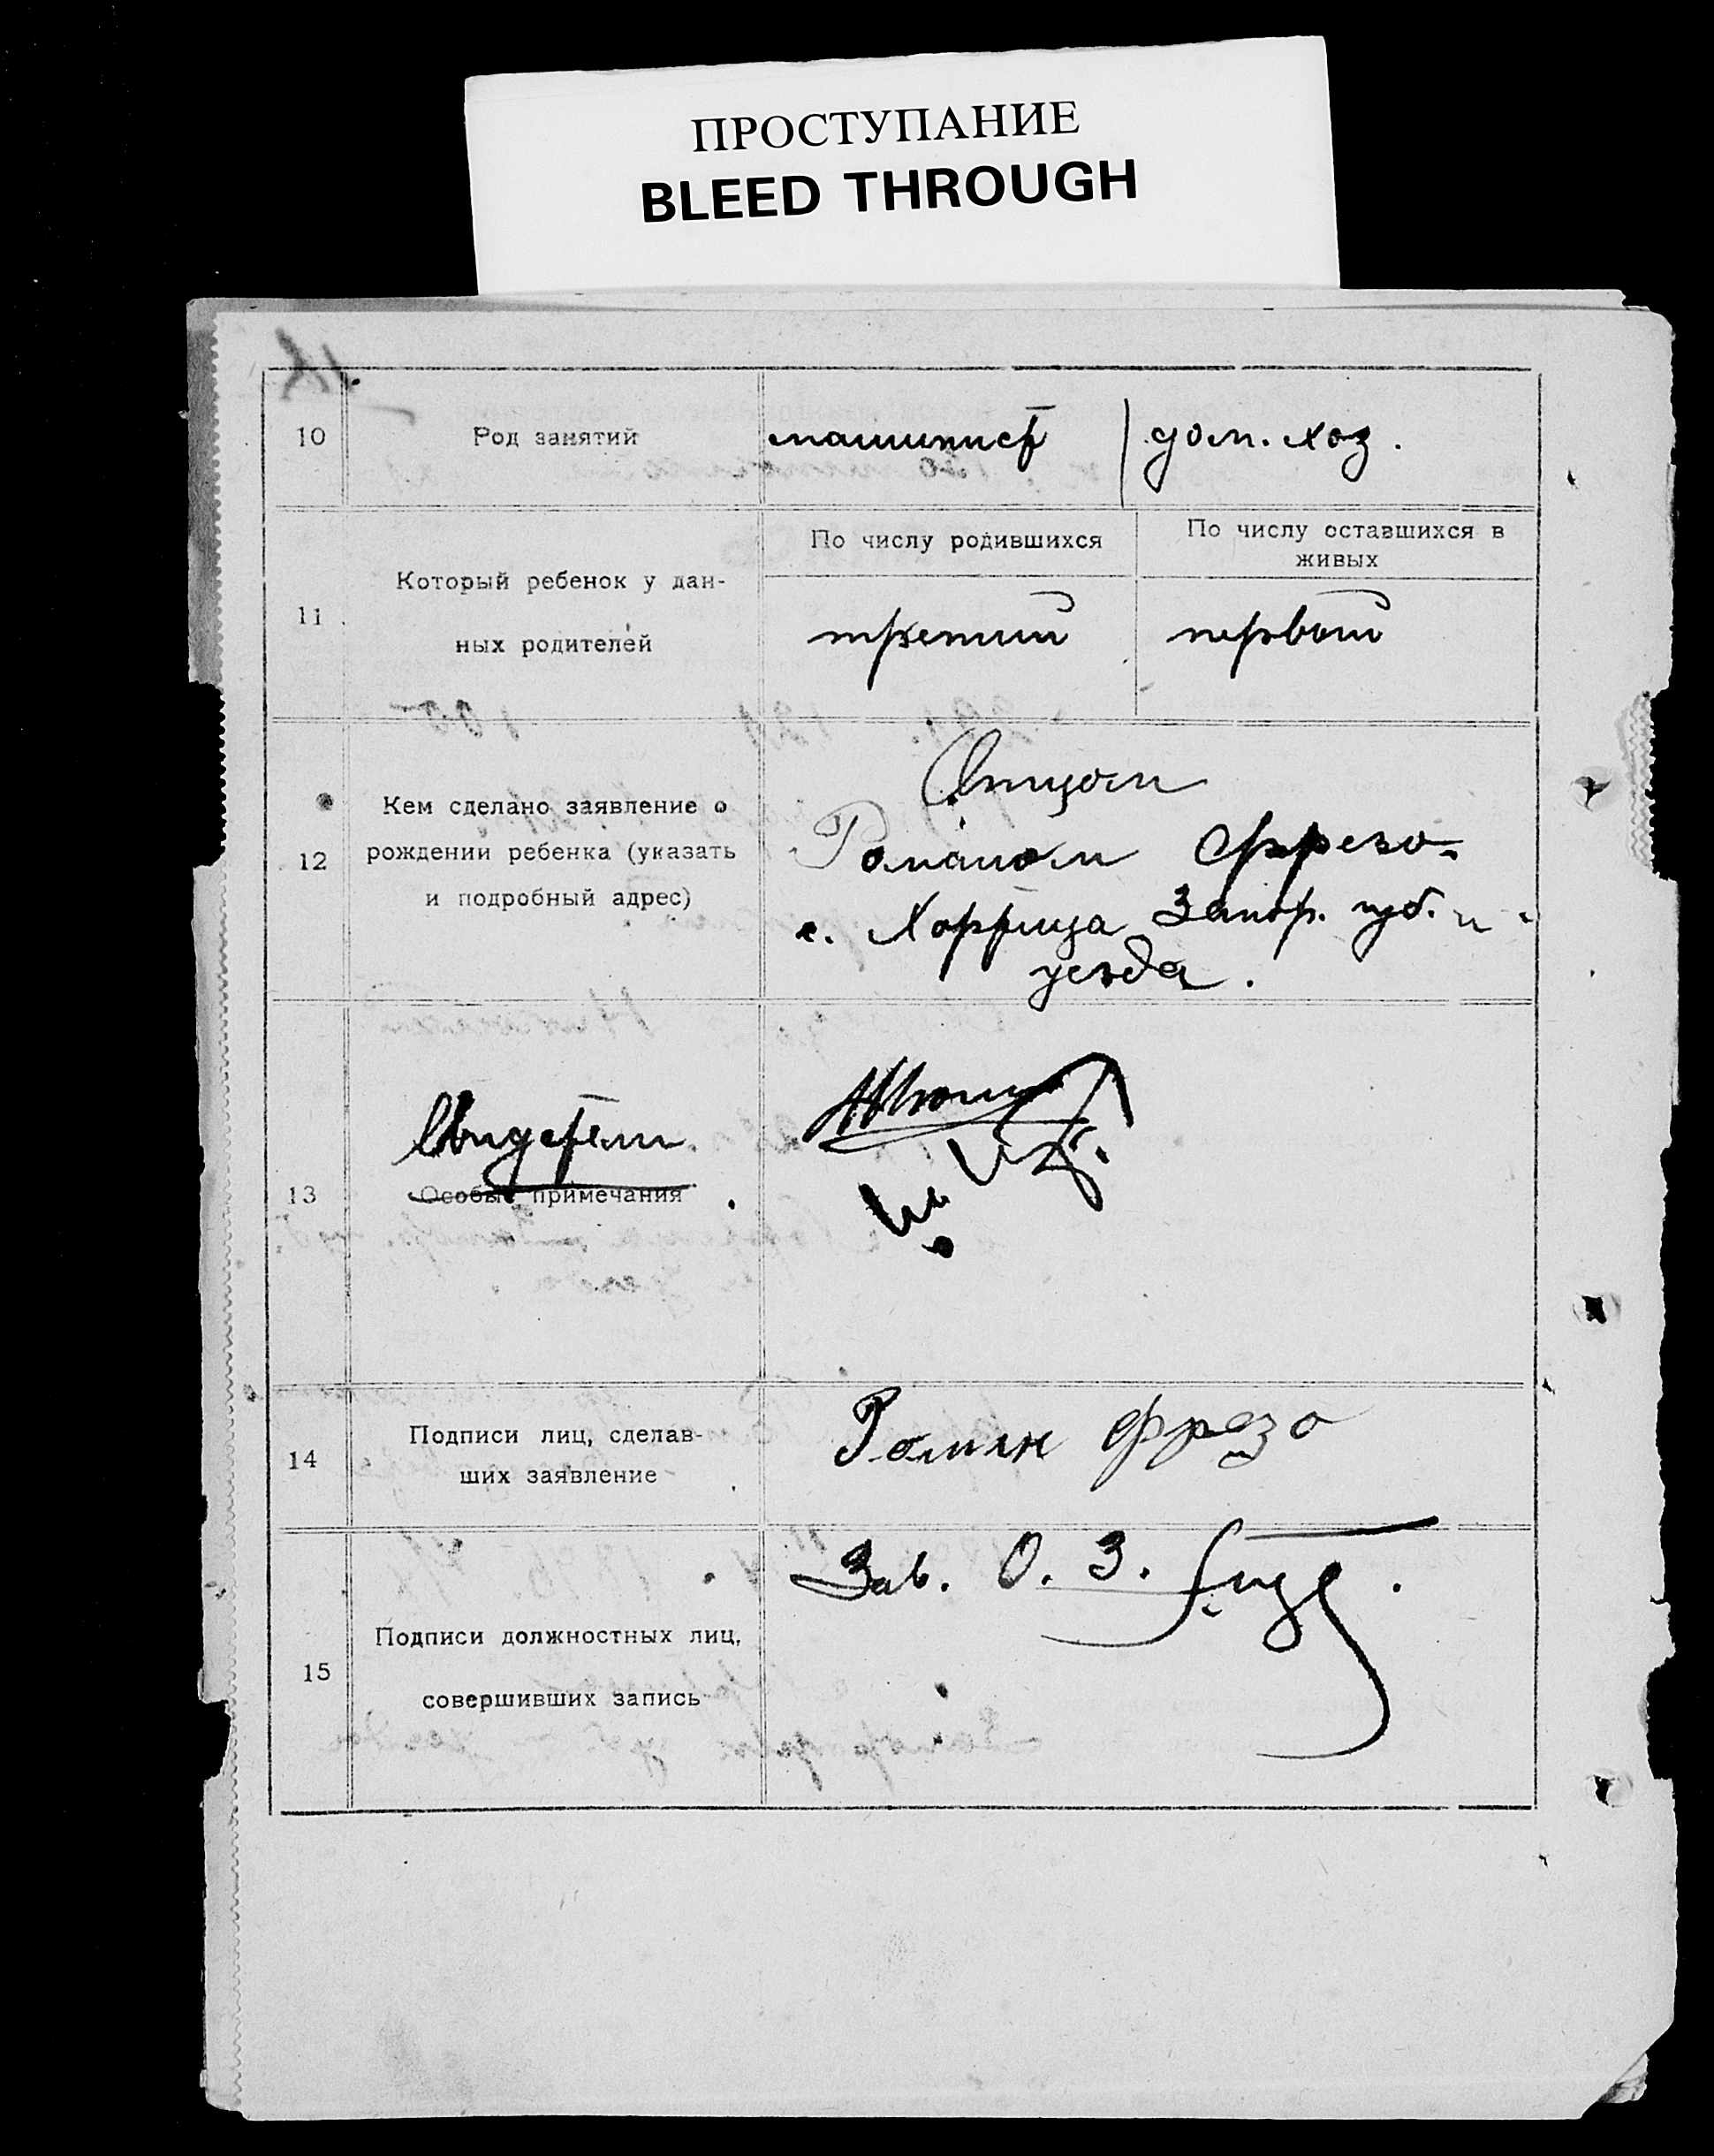 ПРОСТУПАНИЕ
BLEED THROUGH
10 Род занятий машинист дом. хоз.
По числу родившихся По числу оставшихся в
живых
Который ребенок у дан-
11
ных родителей
третий первый
Отцом
Кем сделано заявление о
12 рождении ребенка (указать
и подробный адрес)
Романом Фрезо-
с. Хортица Запор. губ. и
уезда.
Свидетели
13 Особые примечания
Подписи лиц, сделав-
14
ших заявление
Роман Фрезо
Зав. О. З.
Подписи должностных лиц,
15
совершивших запись